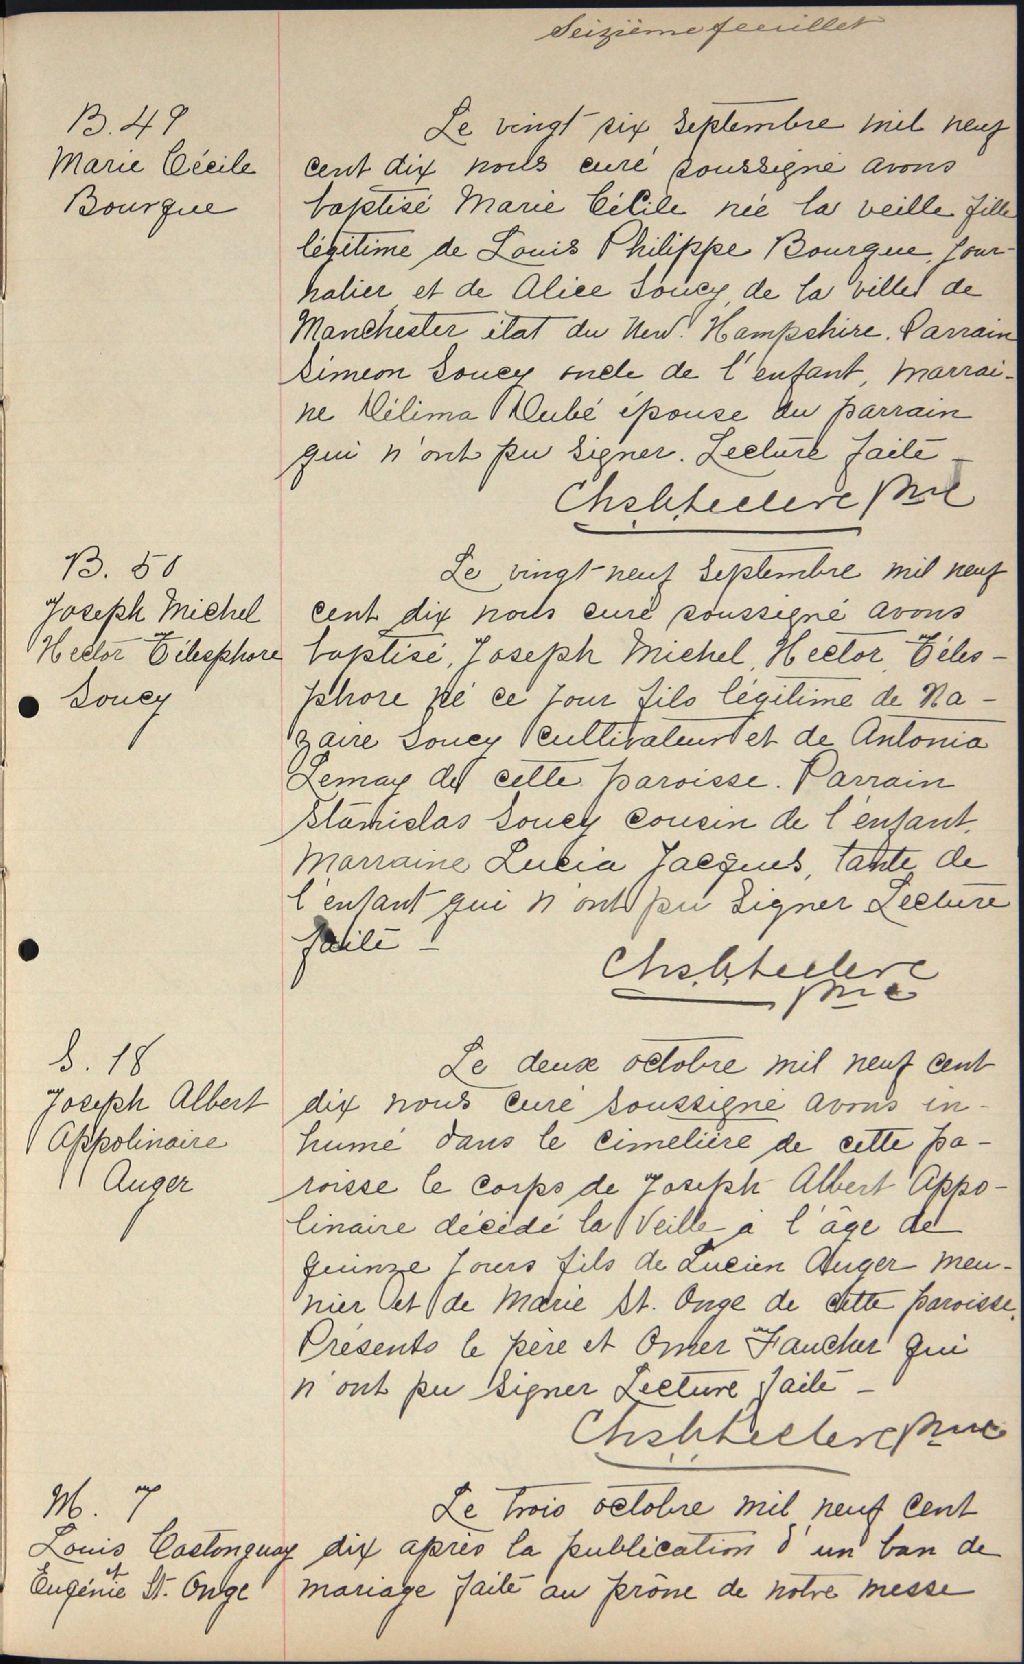 Seizième feuillet
B. 49
Marie Cécile
Bourque
Le vingt six Septembre mil neuf
cent dix nous curé soussigné avons
baptisé Marie Cécile née la veille fille
légitime de Louis Philippe Bourque, Jour-
nalier et de Alice Soucy de la ville de
Manchester état du New. Hampshire. Parrain
Siméon Soucy oncle de l'enfant, marrai-
ne Délima Dubé épouse du parrain
qui n'ont pu signer. Lecture faite -
Leclerc Ptre
B. 50
Joseph Michel
Hector Télesphore
Soucy
Le vingt-neuf Septembre mil neuf
cent dix nous curé soussigné avons
baptisé, Joseph Michel Hector Téles-
phore né ce jour fils légitime de Na-
zaire Soucy cultivateur et de Antonia
Lemay de cette paroisse. Parrain
Stanislas Soucy cousin de l'enfant.
Marraine Lucia Jacques, tante de
l'enfant qui n'ont pu signer Lecture
faite -
Leclerc
Ptre
S. 18
Joseph Albert
Appolinaire
Auger
Le deux octobre mil neuf cent
dix nous curé soussigné avons in-
humé dans le cimetière de cette pa-
roisse le corps de Joseph Albert Appo-
linaire décédé la veille à l'âge de
quinze jours fils de Lucien Auger meu-
nier et de Marie St. Onge de cette paroisse.
Présents le père et Omer Faucher qui
n'ont pu signer Lecture faite -
Leclerc Ptre
M. 7
Louis Castonguay
et
Eugénie St. Onge
Le trois octobre mil neuf cent
dix après la publication d'un ban de
mariage faite au prône de notre messe